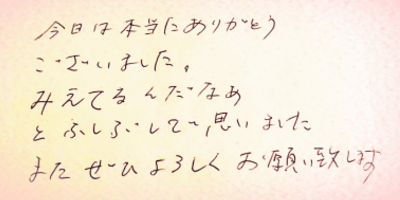 今日は本当にありがとう
ございました。
みえてるんだなあ
とふしぶしで思いました
またぜひよろしくお願い致します